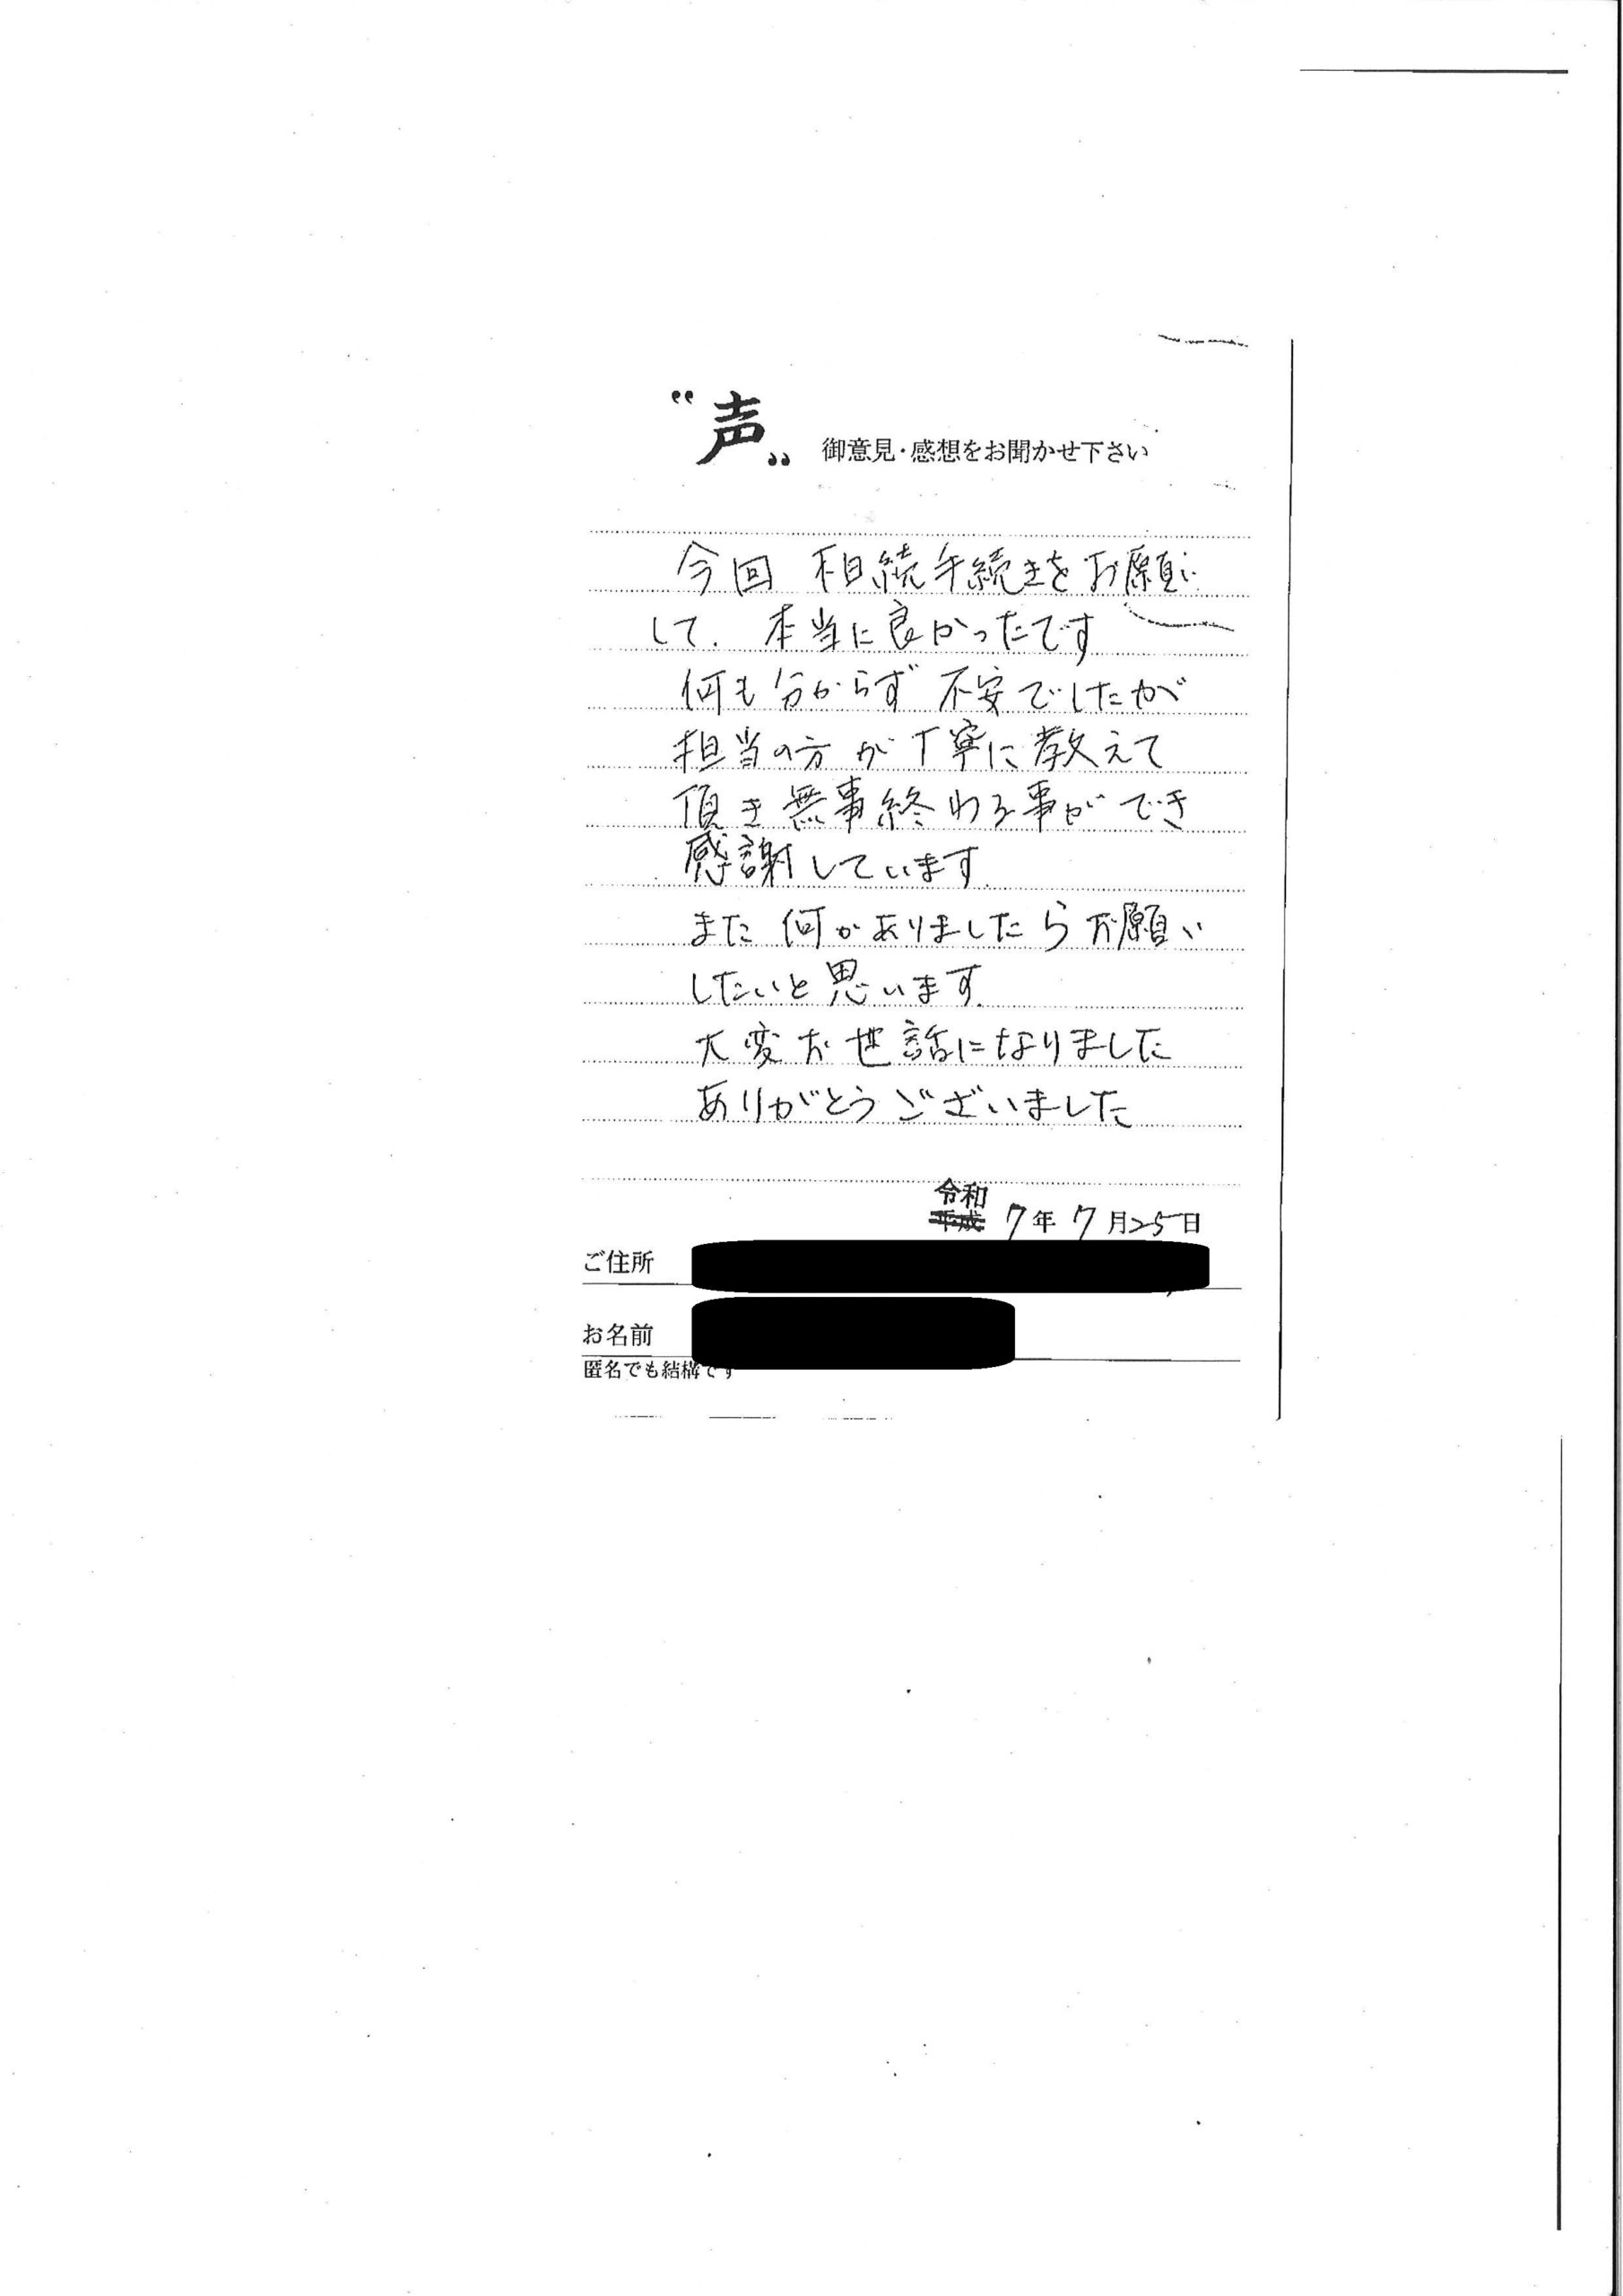 “声„ 御意見・感想をお聞かせ下さい
今回 相続手続きをお願い
して、本当に良かったです
何も分からず 不安でしたが
担当の方が丁寧に教えて
頂き無事終わる事ができ
感謝しています。
また何かありましたらお願い
したいと思います。
大変お世話になりました
ありがとうございました
令和
平成 7年 7月25日
ご住所
お名前
匿名でも結構です